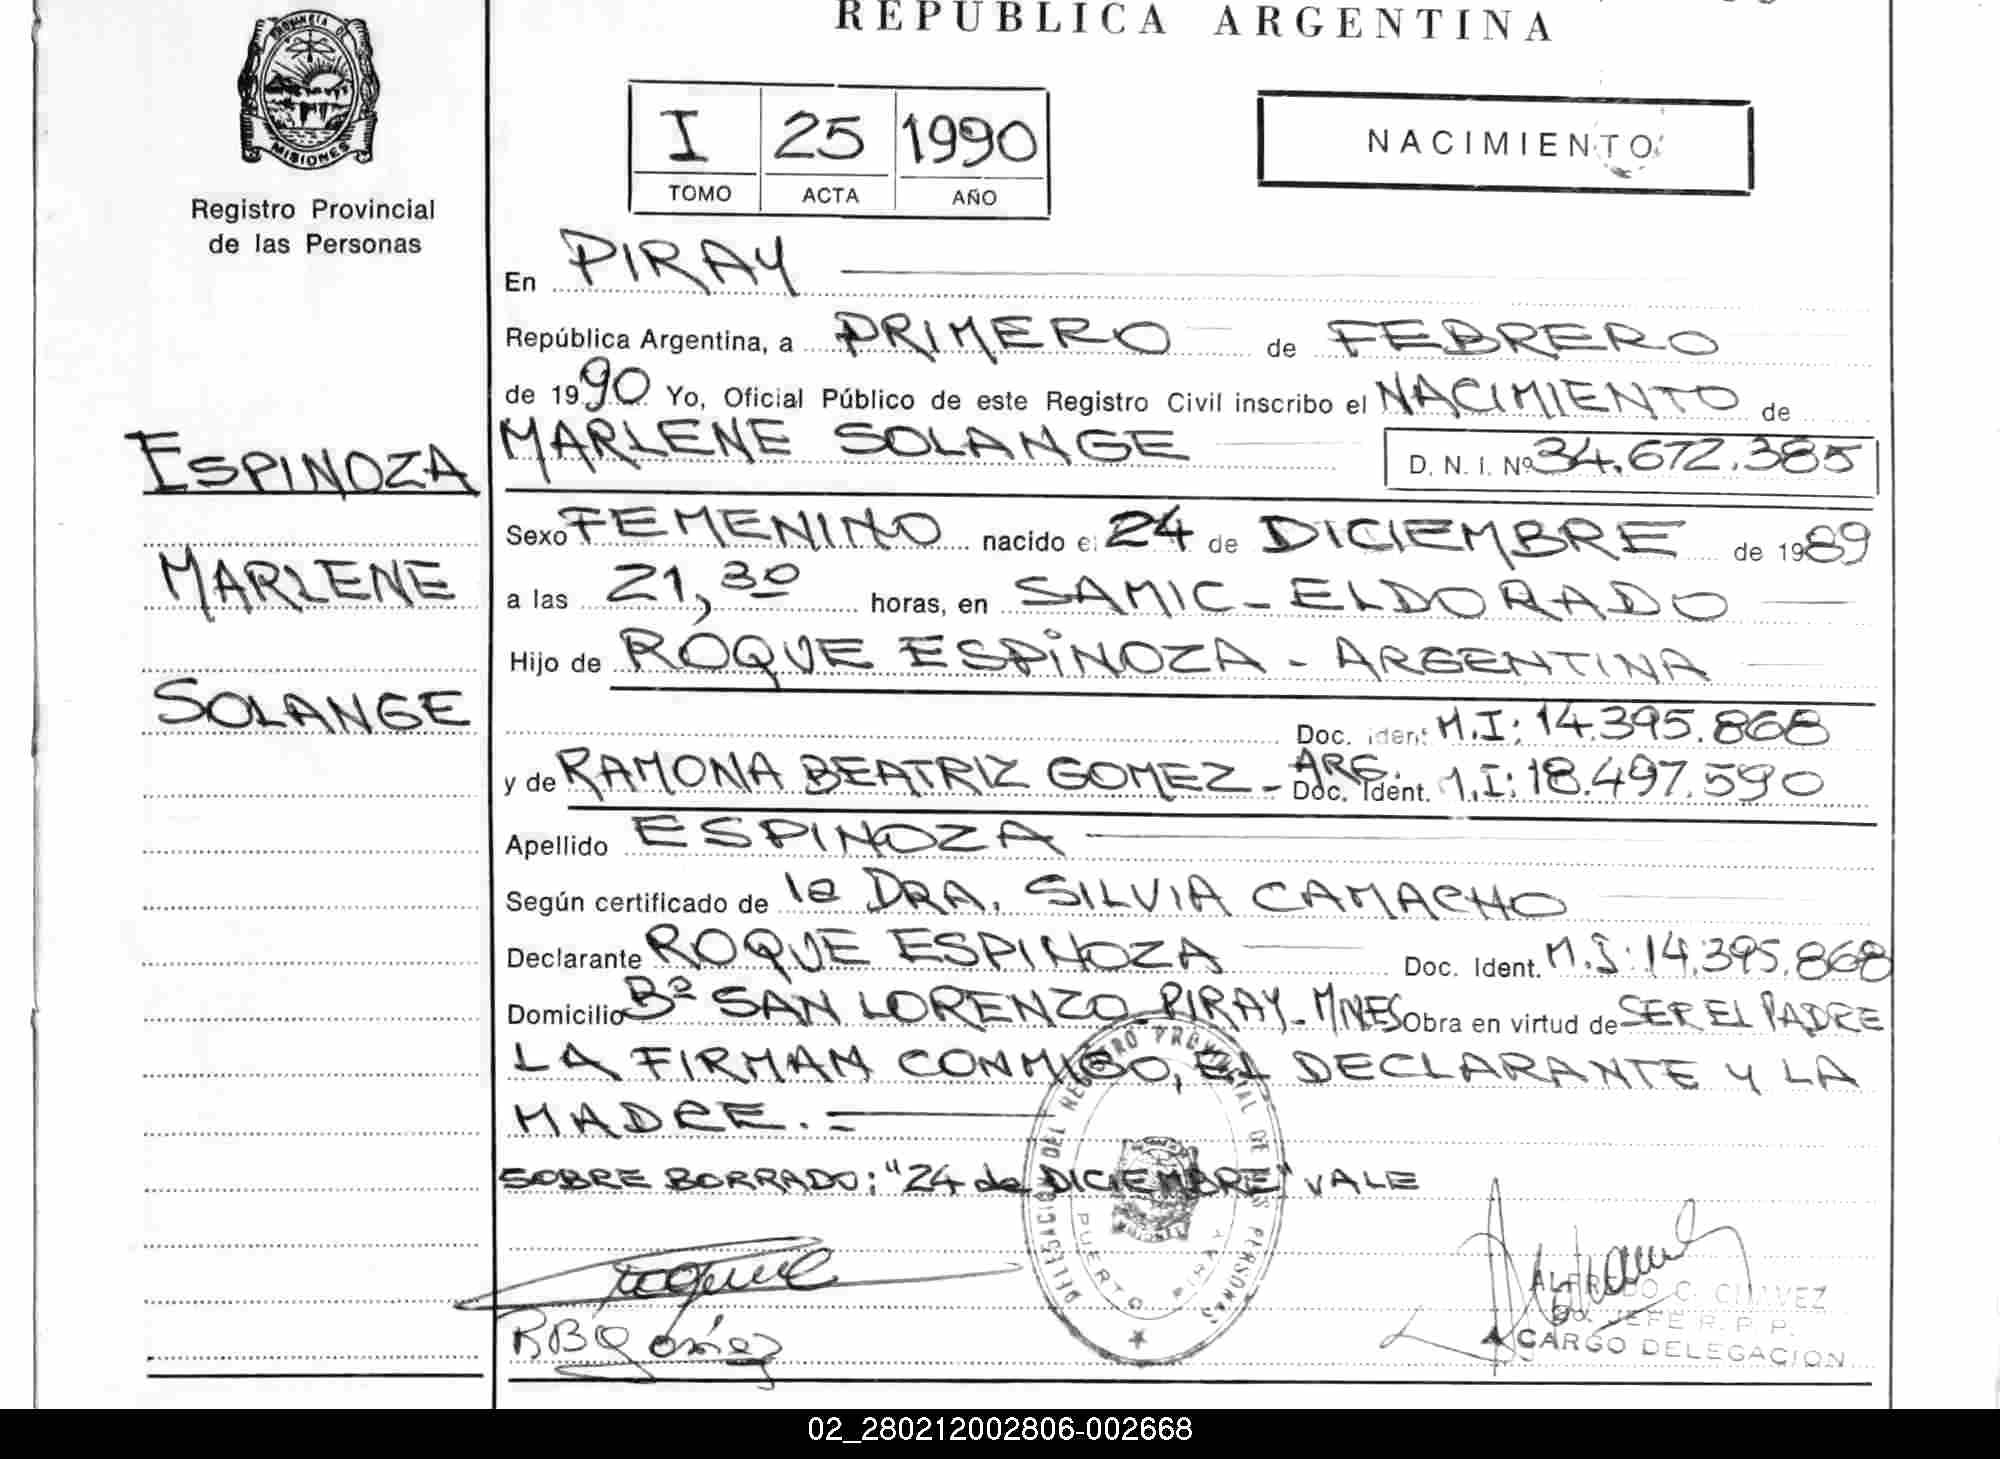 REPUBLICA ARGENTINA
PROVINCIA DE
MISIONES
Registro Provincial
de las Personas
I 25 1990
TOMO ACTA AÑO
NACIMIENTO
En PIRAY
República Argentina, a PRIMERO de FEBRERO
de 1990 Yo, Oficial Público de este Registro Civil inscribo el NACIMIENTO de
ESPINOZA
MARLENE
SOLANGE
MARLENE SOLANGE D. N. I. Nº 34.672.385
Sexo FEMENINO nacido el 24 de DICIEMBRE de 1989
a las 21,30 horas, en SAMIC - ELDORADO
Hijo de ROQUE ESPINOZA - ARGENTINA
Doc. ident M.I: 14.395.868
y de RAMONA BEATRIZ GOMEZ - ARG. Doc. Ident. M.I: 18.497.590
Apellido ESPINOZA
Según certificado de la DRA. SILVIA CAMACHO
Declarante ROQUE ESPINOZA Doc. Ident. M.I: 14.395.868
Domicilio Bº SAN LORENZO - PIRAY - MNES Obra en virtud de SER EL PADRE
LA FIRMAN CONMIGO, EL DECLARANTE Y LA
MADRE. =
SOBRE BORRADO: "24 de DICIEMBRE" VALE
DELEGACION DEL REGISTRO PROVINCIAL DE LAS PERSONAS
PUERTO PIRAY
RBGomez
ALFREDO C. CHAVEZ
JEFE R. P. P.
A CARGO DELEGACION
02_280212002806-002668